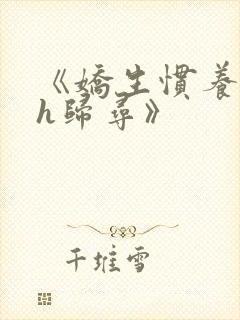 《嬌生慣養
h歸尋》
千堆雪